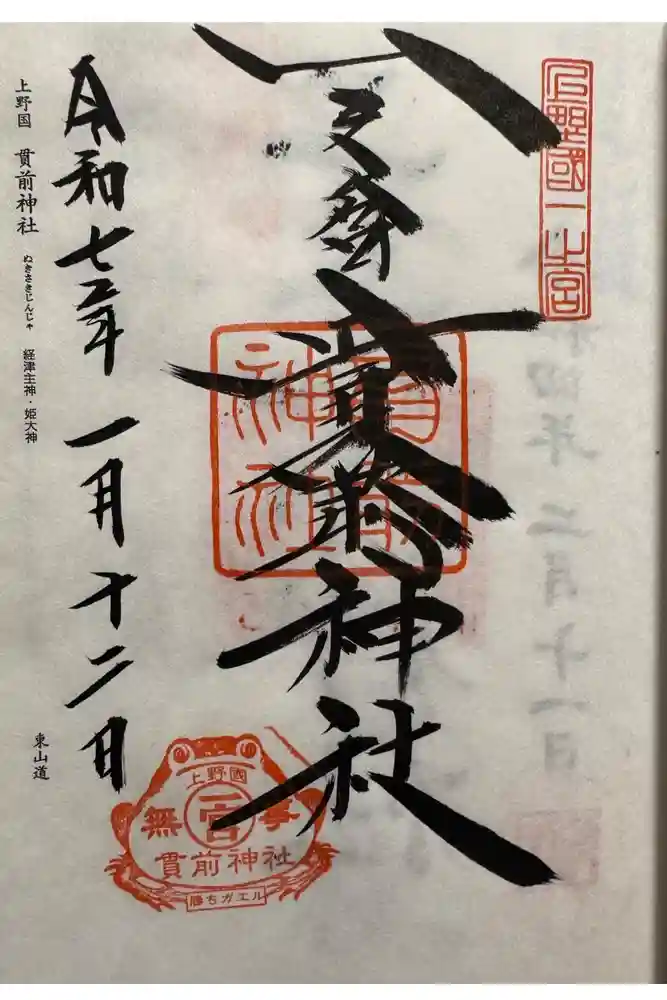 上野國一之宮
貫前神社
貫前神社
令和七年一月十二日
上野国 貫前神社 ぬきさきじんじゃ 経津主神・姫大神
東山道
上野國
無 一宮 事
貫前神社
勝ちガエル